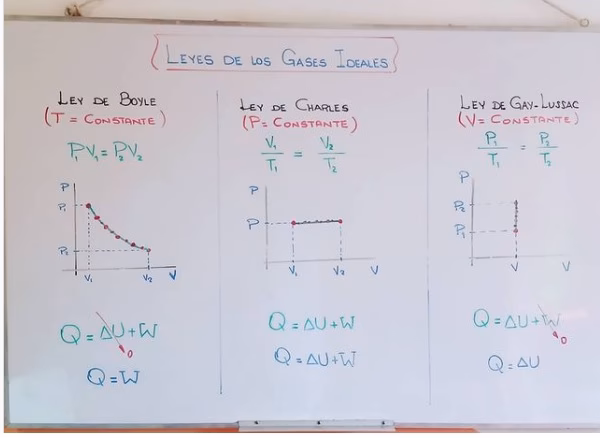 LEYES DE LOS GASES IDEALES
LEY DE BOYLE
(T = CONSTANTE)
P₁V₁ = P₂V₂
P
P₁
P₁
V₁ V₂ V
Q = ΔU + W
0
Q = W
LEY DE CHARLES
(P = CONSTANTE)
V₁/T₁ = V₂/T₂
P
P
V₁ V₂ V
Q = ΔU + W
Q = ΔU + W
LEY DE GAY-LUSSAC
(V = CONSTANTE)
P₁/T₁ = P₂/T₂
P
P₂
P₁
V V
Q = ΔU + W
0
Q = ΔU